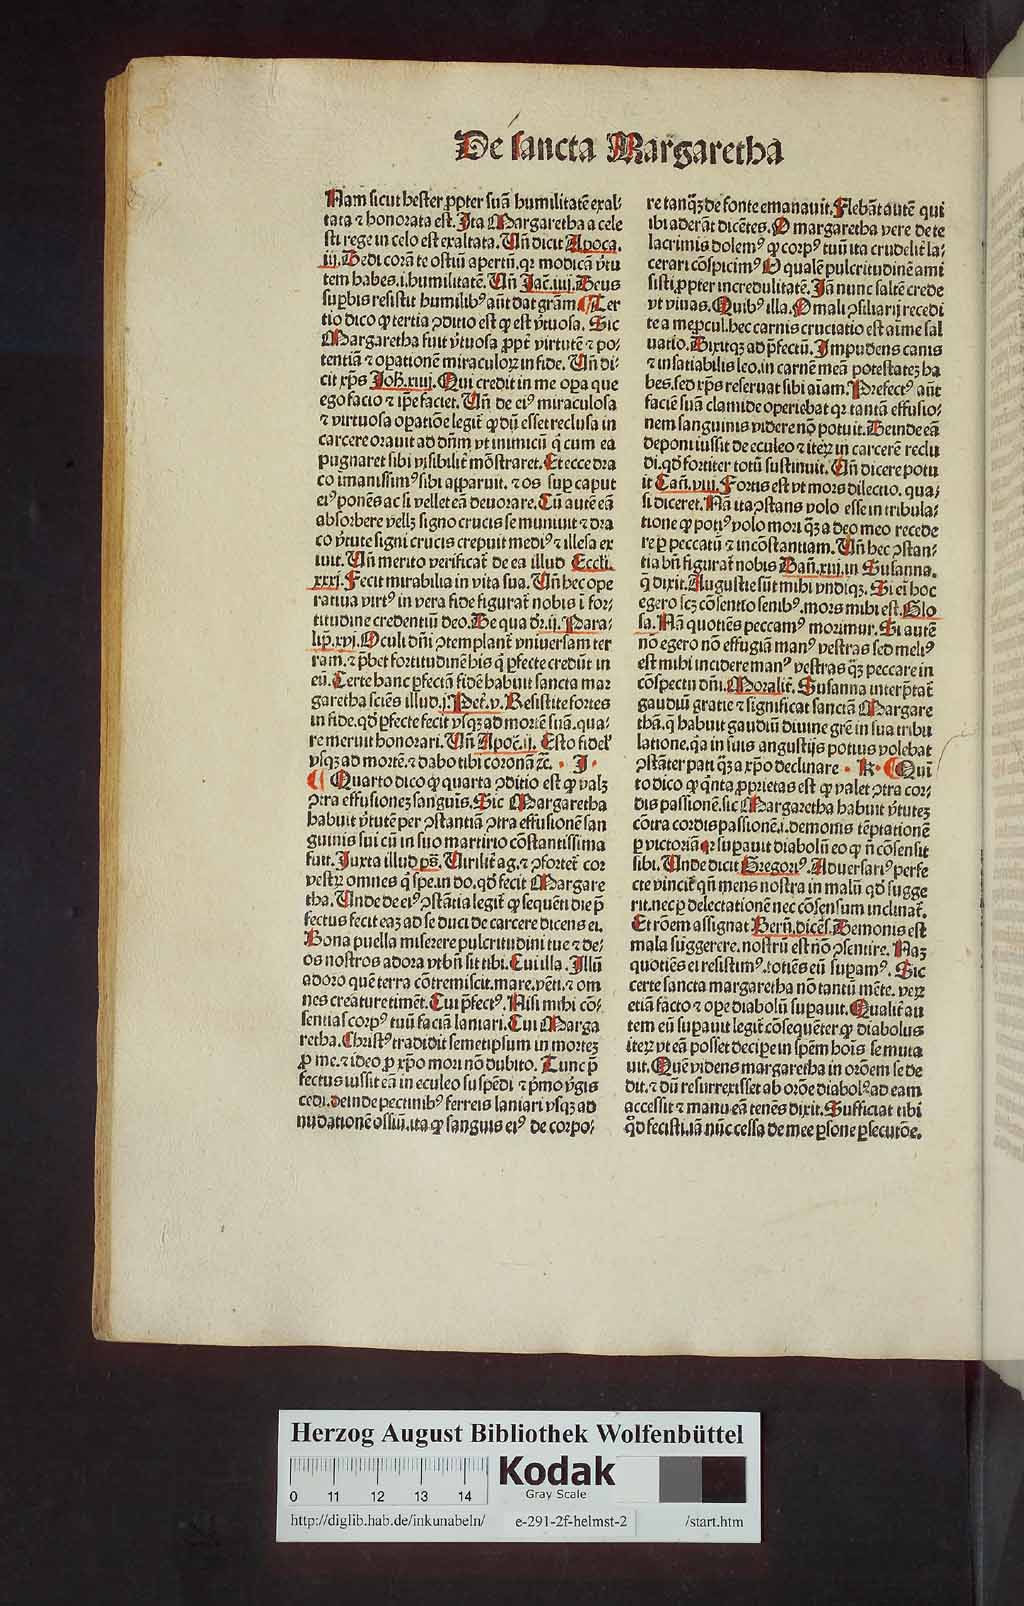 De sancta Margaretha
Nam sicut hester ꝓpter suã humilitatẽ exal-
tata ⁊ honorata est. Ita Margaretha a cele
sti rege in celo est exaltata. Vñ dicit Apoca.
iij. Dedi corã te ostiũ apertũ. qꝛ modicã ꝟtu
tem habes. i. humilitatẽ. Vñ Jac̃. iiij. Deus
suꝑbis resistit humilibꝰ aũt dat grãm ¶ Ter
tio dico ꝙ tertia ꝯditio est ꝙ est ꝟtuosa. Sic
Margaretha fuit ꝟtuosa ꝓpt̃ virtutẽ ⁊ po-
tentiã ⁊ oꝑationẽ miraculoꝝ in fide. Vñ di-
cit xp̃s Joh̃. xiiij. Qui credit in me opa que
ego facio ⁊ ip̃e faciet. Vñ de eiꝰ miraculosa
⁊ virtuosa opatiõe legit̃ ꝙ dũ esset reclusa in
carcere orauit ad dñm vt inimicũ q̃ cum ea
pugnaret sibi visibilit̃ mõstraret. Et ecce dra
co ĩmanissimꝰ sibi apparuit. ⁊ os suꝑ caput
eiꝰ ponẽs ac si vellet eã deuorare. Cũ autẽ eã
absorbere vellꝫ signo crucis se muniuit ⁊ dra
co ꝟtute signi crucis crepuit mediꝰ ⁊ illesa ex
iuit. Vñ merito verificat̃ de ea illud Eccli.
xxxj. Fecit mirabilia in vita sua. Vñ hec ope
ratiua virtꝰ in vera fide figurat̃ nobis ĩ for-
titudine credentiũ deo. De qua dr̃. ij. Para-
lip̃. xvj. Oculi dñi ꝯtemplant̃ vniuersam ter
ram. ⁊ p̃bet fortitudinẽ his q̃ ꝑfecte credũt in
eũ. Certe hanc ꝑfectã fidẽ habuit sancta mar
garetha sciẽs illud. j. Pet̃. v. Resistite fortes
in fide. qd̃ ꝑfecte fecit vsqꝫ ad mortẽ suã. qua-
re meruit honorari. Vñ Apoc̃. ij. Esto fidel'
vsqꝫ ad mortẽ. ⁊ dabo tibi coronã ⁊c̃. · J ·
¶ Quarto dico ꝙ quarta ꝯditio est ꝙ valꝫ
ꝯtra effusioneꝫ sanguĩs. Sic Margaretha
habuit ꝟtutẽ per ꝯstantiã ꝯtra effusionẽ san
guinis sui cũ in suo martirio cõstantissima
fuit. Juxta illud ps̃. Virilit̃ ag. ⁊ ꝯfortet̃ cor
vestꝝ omnes q̃ spe. in do. qd̃ fecit Margare
tha. Vnde de eiꝰ ꝯstãtia legit̃ ꝙ sequẽti die p̃
fectus fecit eaꝫ ad se duci de carcere dicens ei.
Bona puella miserere pulcritudini tue ⁊ de-
os nostros adora vt bñ sit tibi. Cui illa. Illũ
adoro quẽ terra cõtremiscit. mare. vẽti. ⁊ om
nes creature timẽt. Cui p̃fectꝰ. Nisi mihi cõ-
sentias corpꝰ tuũ faciã laniari. Cui Marga
retha. Christꝰ tradidit semetipsum in morteꝫ
ꝓ me. ⁊ ideo ꝓ xp̃o mori nõ dubito. Tunc p̃
fectus iussit eã in eculeo suspẽdi ⁊ p̃mo ꝟgis
cedi. deinde pectinibꝰ ferreis laniari vsqꝫ ad
nudationẽ ossiũ. ita ꝙ sanguis eiꝰ de corpo-
re tanqꝫ de fonte emanauit. Flebãt autẽ qui
ibi aderãt dicẽtes. O margaretha vere de te
lacrimis dolemꝰ ꝙ corpꝰ tuũ ita crudelit̃ la-
cerari cõspicimꝰ O qualẽ pulcritudinẽ ami
sisti ꝓpter incredulitatẽ. Jã nunc saltẽ crede
vt viuas. Quibꝰ illa. O mali ꝯsiliarij recedi
te a me procul. hec carnis cruciatio est aĩme sal
uatio. Dixitqꝫ ad p̃fectũ. Impudens canis
⁊ insatiabilis leo. in carnẽ meã potestateꝫ ha
bes. sed xp̃s reseruat sibi aĩam. Prefectꝰ aũt
faciẽ suã clamide operiebat qꝛ tantã effusio-
nem sanguinis videre nõ potuit. Deinde eã
deponi iussit de eculeo ⁊ iteꝝ in carcerẽ reclu
di. qd̃ fortiter totũ sustinuit. Vñ dicere potu
it Cañ. viii. Fortis est vt mors dilectio. qua-
si diceret. Nã ita ꝯstans volo esse in tribula-
tione ꝙ potiꝰ volo mori qꝫ a deo meo recede
re ꝑ peccatũ ⁊ incõstantiam. Vñ hec ꝯstan-
tia bñ figurat̃ nobis Dañ. xiij. in Susanna.
q̃ dixit. Augustie sũt mihi vndiqꝫ. Si eĩ hoc
egero scꝫ cõsentio senibꝰ. mors mihi est. Glo
sa. Nã quotiẽs peccamꝰ morimur. Si autẽ
nõ egero nõ effugiã manꝰ vestras sed meliꝰ
est mihi incidere manꝰ vestras qꝫ peccare in
cõspectu dñi. Moralit̃. Susanna interp̃tat̃
gaudiũ gratie ⁊ significat sanctã Margare
thã. q̃ habuit gaudiũ diuine gr̃e in sua tribu
latione. q̃a in suis angustijs potius volebat
ꝯstãter pati qꝫ a xp̃o declinare · K · ¶ Quĩ
to dico ꝙ qĩnta ꝓprietas est ꝙ valet ꝯtra cor-
dis passionẽ. sic Margaretha habuit ꝟtuteꝫ
cõtra cordis passionẽ. i. demonis tẽptationẽ
ꝑ victoriã qꝛ suꝑauit diabolũ eo ꝙ ñ cõsensit
sibi. Vnde dicit Gregoriꝰ. Aduersariꝰ perfe
cte vincit̃ qñ mens nostra in malũ qd̃ sugge
rit. nec ꝑ delectationẽ nec cõsensum inclinat̃.
Et rõem assignat Berñ. dicẽs. Demonis est
mala suggerere. nostrũ est nõ ꝯsentire. Naꝫ
quotiẽs ei resistimꝰ. totiẽs eũ suꝑamꝰ. Sic
certe sancta margaretha nõ tantũ mẽte. veꝝ
etiã facto ⁊ oꝑe diabolũ suꝑauit. Qualit̃ au
tem eũ suꝑauit legit̃ cõsequẽter ꝙ diabolus
iteꝝ vt eã posset deciꝑe in spẽm hoĩs se muta
uit. Quẽ videns margaretha in orõem se de
dit. ⁊ dũ resurrexisset ab orõe diabolꝰ ad eam
accessit ⁊ manu eã tenẽs dixit. Sufficiat tibi
qd̃ fecisti. iã nũc cessa de mee ꝑsone ꝑsecutõe.
Herzog August Bibliothek Wolfenbüttel
Kodak
Gray Scale
0 11 12 13 14
http://diglib.hab.de/inkunabeln/ e-291-2f-helmst-2 /start.htm